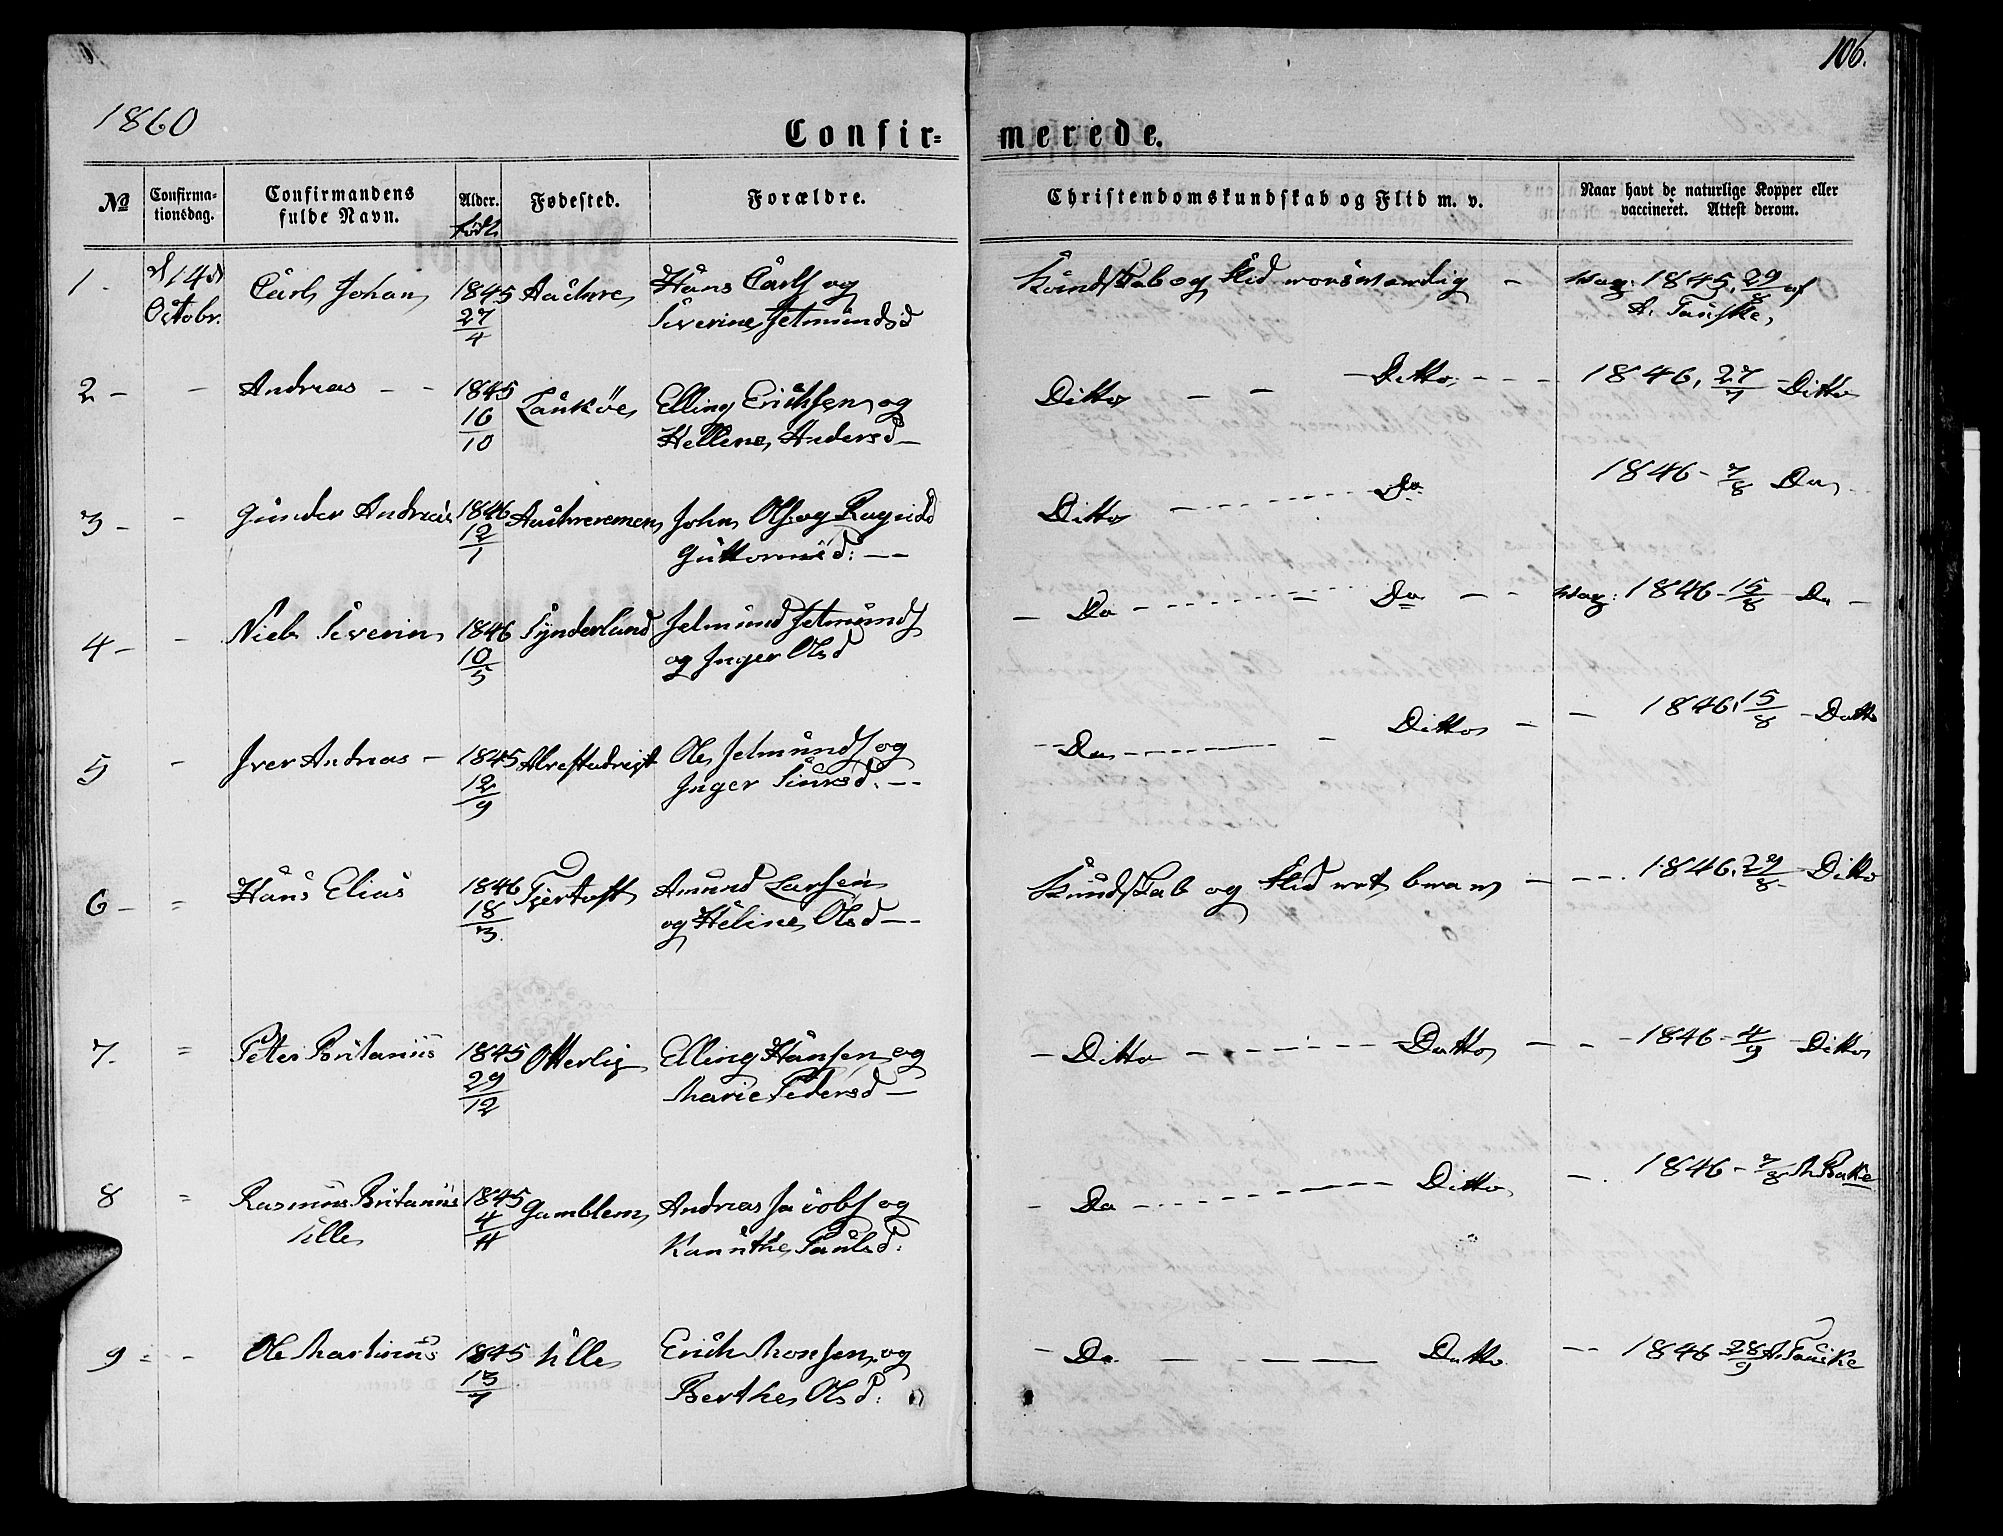 106.
1860
Confir=merede.
No Confirmationsdag. Confirmandens fulde Navn. Alder. Fødested. Forældre. Christendomskundskab og Flid m. v. Naar havt de naturlige Kopper eller vaccineret. Attest derom.
født
1. d 14de Octobr. Carl Johan 1845 27/4 Hans Carls og Severine Jetmundsd Kundskab og Flid vac: 1845, 29/8 af
2 - - Andreas - - 1845 16/10 Elling Erichsen og Hellene Andersd - Ditto - - - Ditto - - - 1846, 27/7 - Ditto
3 - - Gunder Andreas 1846 12/1 John Ols. og Guttormsd: - - Ditto - - - Do 1846 - 7/8 Do
4 - - Niels Severin 1846 10/5 Synderland Jetmund Jetmunds og Inger Olsd - Do - - - Do - - vac: 1846 - 15/8 - Do -
5 - Iver Andreas - 1845 12/9 Ole Jetmunds og Inger - - - Do - - - Ditto - - 1846, 15/8 - Ditto
6 - = Hans Elias 1846 18/3. Amund Larsen og Heline Olsd - - Kundskab og Flid - - - 1846, 29/8 - Ditto
7. = Peter Britanius 1845 29/12 Otterlei Elling Hansen og Marie Pedersd - - Ditto - - - Ditto - - - 1846 - 4/9 - Ditto
8 = Rasmus Britanius Ulle 1845 4/11 Gamblem Andreas Jacobs og Kanuthe Paulsd: - Do - - - Ditto - . 1846 - 7/8
9 = - Ole Martinus 1845 13/7 Ulle Erich Monsen og Berthe Olsd: - Do - - - Ditto - - 1846 28/9